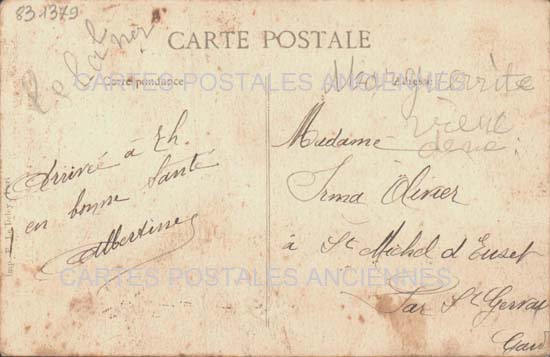 83 1379
CARTE POSTALE
Correspondance
Adresse
CARTES POSTALES ANCIENNES
Marguerite
vieux
Arrivée à 7h.
en bonne santé
Albertine
Madame
Irma Olivier
à St Michel d'Euset
Par St Gervais
Gard
CARTES POSTALES ANCIENNES